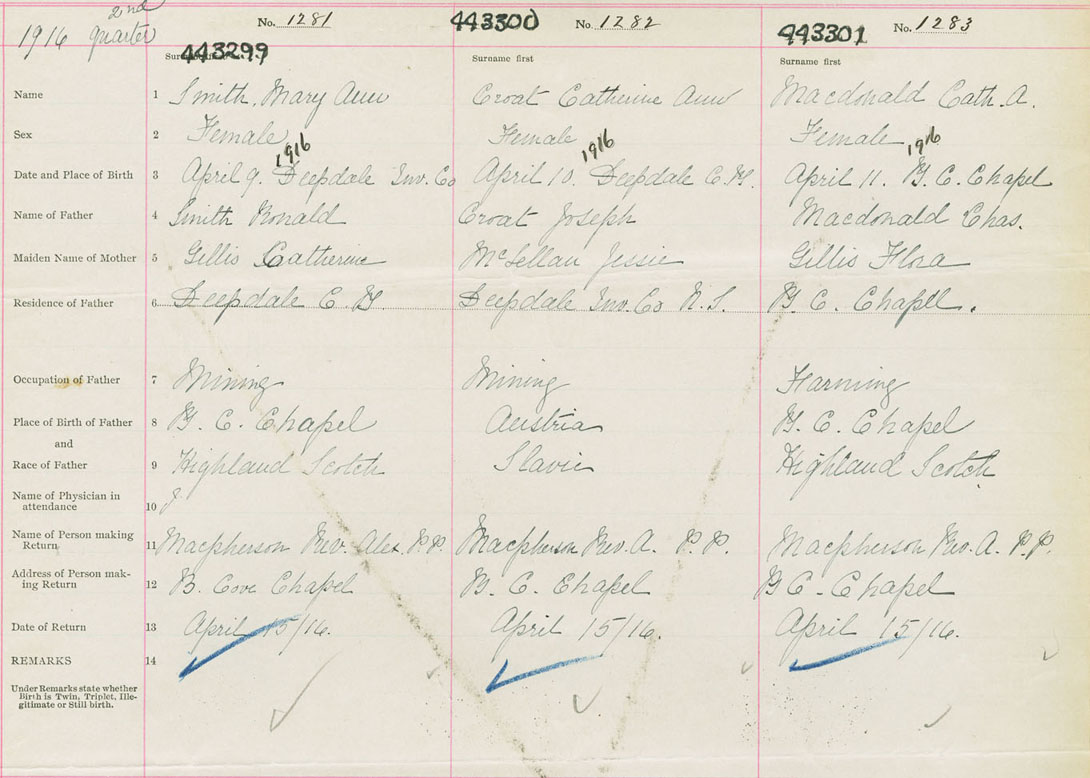 1916 2nd quarter
No. 1281 443300 No. 1282 443301 No. 1283
443299
Surname first Surname first
Name 1 Smith, Mary Ann Croat Catherine Ann Macdonald Cath. A.
Sex 2 Female Female Female
1916 1916 1916
Date and Place of Birth 3 April 9. Deepdale Inv. Co April 10. Deepdale C.B. April 11. B. C. Chapel
Name of Father 4 Smith Ronald Croat Joseph Macdonald Chas.
Maiden Name of Mother 5 Gillis Catherine McLellan Jessie Gillis Flora
Residence of Father 6 Deepdale C. B. Deepdale Inv. Co N. S. B. C. Chapell.
Occupation of Father 7 Mining Mining Farming
Place of Birth of Father 8 B. C. Chapel Austria B. C. Chapel
and
Race of Father 9 Highland Scotch Slavic Highland Scotch
Name of Physician in
attendance 10
Name of Person making
Return 11 Macpherson Rev. Alex. P.P. Macpherson Rev. A. P. P. Macpherson Rev. A. P.P.
Address of Person mak-
ing Return 12 B. Cove Chapel B. C. Chapel B C. Chapel
Date of Return 13 April 15/16. April 15/16. April 15/16.
REMARKS 14
Under Remarks state whether
Birth is Twin, Triplet, Ille-
gitimate or Still birth.